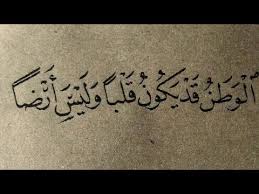 الْوَطَنُ قَدْ يَكُونُ قَلْبًا وَلَيْسَ أَرْضًا